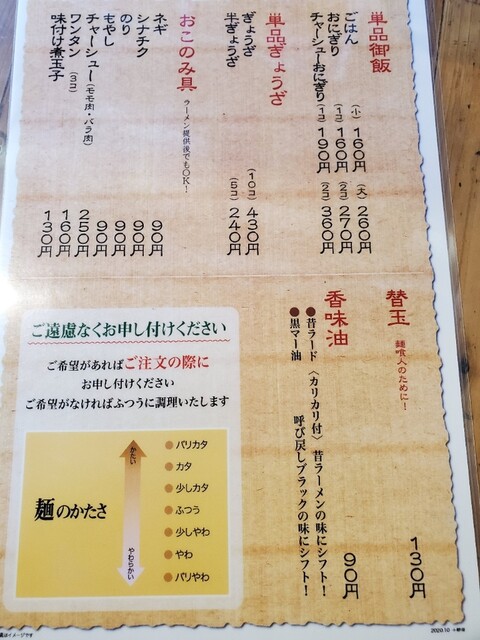 単品御飯
ごはん (小)160円 (大)260円
おにぎり (1コ)160円 (2コ)270円
チャーシューおにぎり (1コ)190円 (2コ)360円
単品ぎょうざ
ぎょうざ (10コ)430円
半ぎょうざ (5コ)240円
おこのみ具 ラーメン提供後でもOK!
ネギ 90円
シナチク 90円
のり 90円
もやし 90円
チャーシュー(モモ肉・バラ肉) 250円
ワンタン(3コ) 160円
味付け煮玉子 130円
替玉 麺喰人のために! 130円
香味油 90円
●昔ラード〈カリカリ付〉昔ラーメンの味にシフト!
●黒マー油 呼び戻しブラックの味にシフト!
ご遠慮なくお申し付けください
ご希望があればご注文の際に
お申し付けください
ご希望がなければふつうに調理いたします
麺のかたさ
かたい
やわらかい
バリカタ
カタ
少しカタ
ふつう
少しやわ
やわ
バリやわ
真はイメージです
2020.10